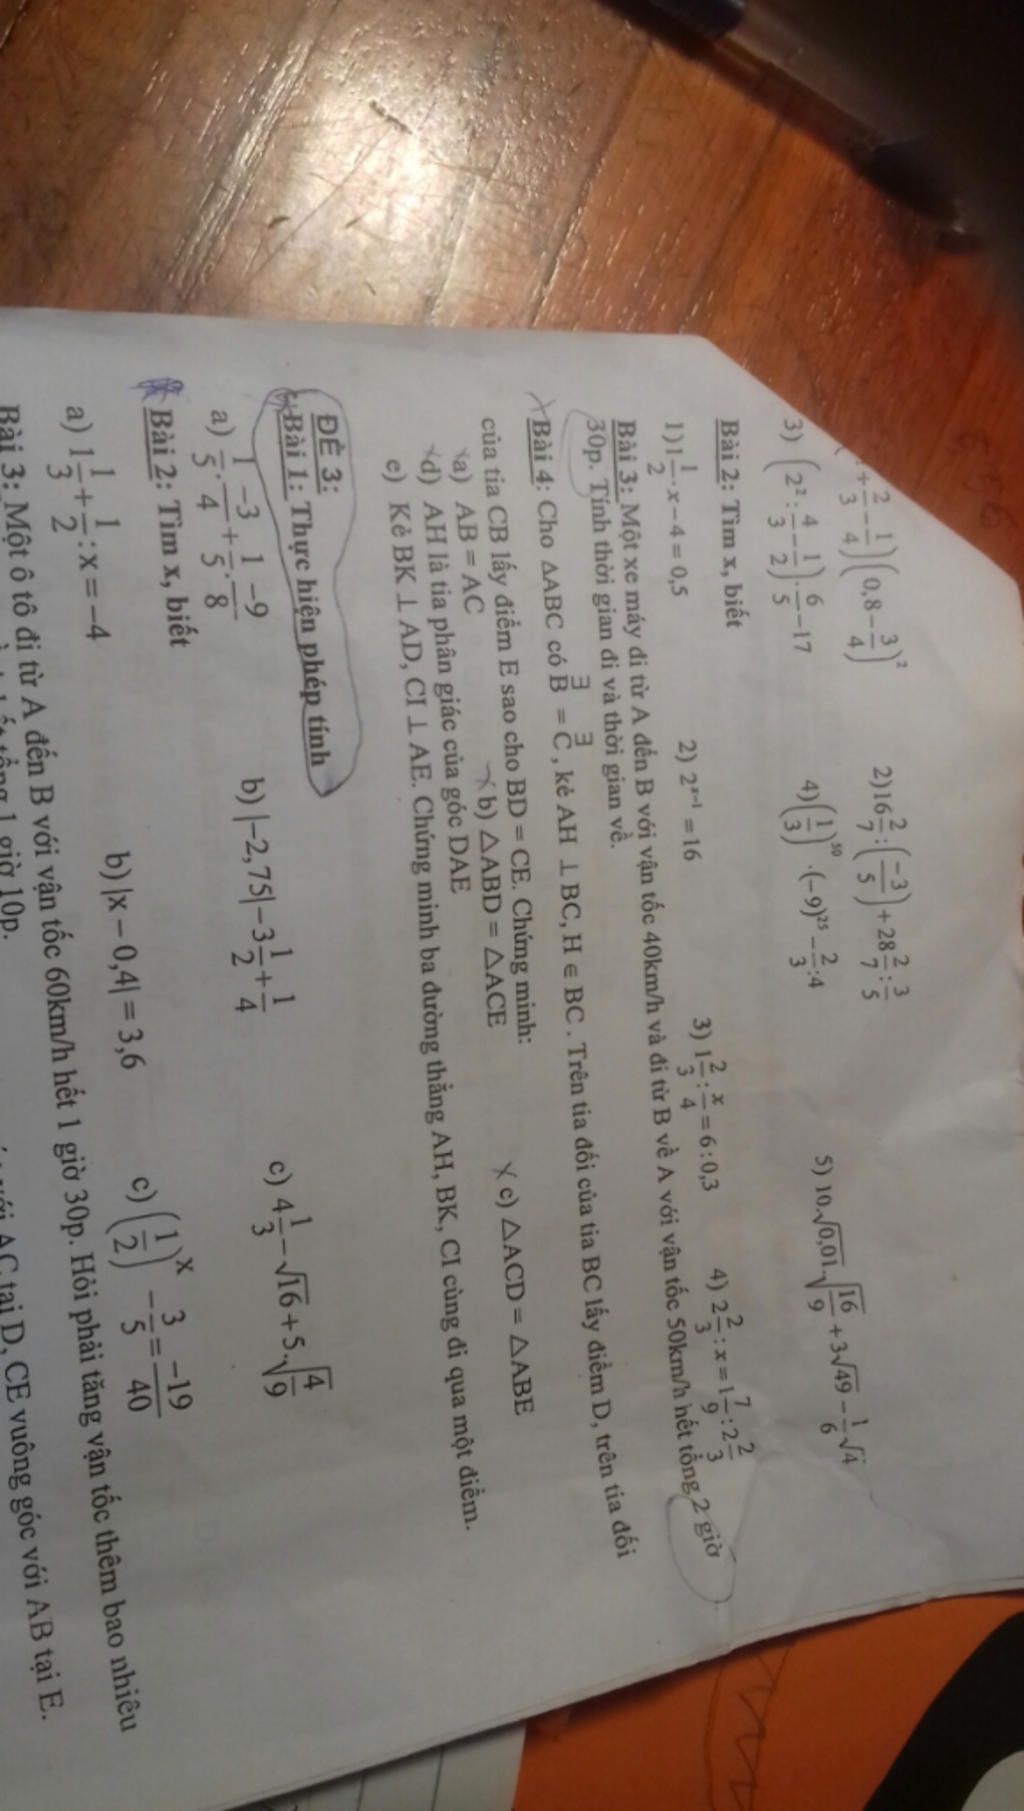 + 2/3 − 1/4)(0,8 − 3/4)² 2) 16 2/7 : (−3/5) + 28 2/7 : 3/5
3) (2² : 4/3 − 1/2) · 6/5 − 17 4) (1/3)⁵⁰ · (−9)²⁵ − 2/3 : 4 5) 10.√0,01.√(16/9) + 3√49 − 1/6 √4
Bài 2: Tìm x, biết
1) 1 1/2 . x − 4 = 0,5 2) 2ˣ⁻¹ = 16 3) 1 2/3 : x/4 = 6 : 0,3 4) 2 2/3 : x = 1 7/9 : 2 2/3
Bài 3: Một xe máy đi từ A đến B với vận tốc 40km/h và đi từ B về A với vận tốc 50km/h hết tổng 2 giờ
30p. Tính thời gian đi và thời gian về.
Bài 4: Cho ΔABC có B = C, kẻ AH ⊥ BC, H ∈ BC. Trên tia đối của tia BC lấy điểm D, trên tia đối
của tia CB lấy điểm E sao cho BD = CE. Chứng minh:
a) AB = AC b) △ABD = △ACE c) △ACD = △ABE
d) AH là tia phân giác của góc DAE
e) Kẻ BK ⊥ AD, CI ⊥ AE. Chứng minh ba đường thẳng AH, BK, CI cùng đi qua một điểm.
ĐỀ 3:
Bài 1: Thực hiện phép tính
a) 1/5 · −3/4 + 1/5 · −9/8 b) |−2,75| − 3 1/2 + 1/4 c) 4 1/3 − √16 + 5.√(4/9)
Bài 2: Tìm x, biết
a) 1 1/3 + 1/2 : x = −4 b) |x − 0,4| = 3,6 c) (1/2)ˣ − 3/5 = −19/40
Bài 3: Một ô tô đi từ A đến B với vận tốc 60km/h hết 1 giờ 30p. Hỏi phải tăng vận tốc thêm bao nhiêu
tổng 1 giờ 10p.
với AC tại D, CE vuông góc với AB tại E.